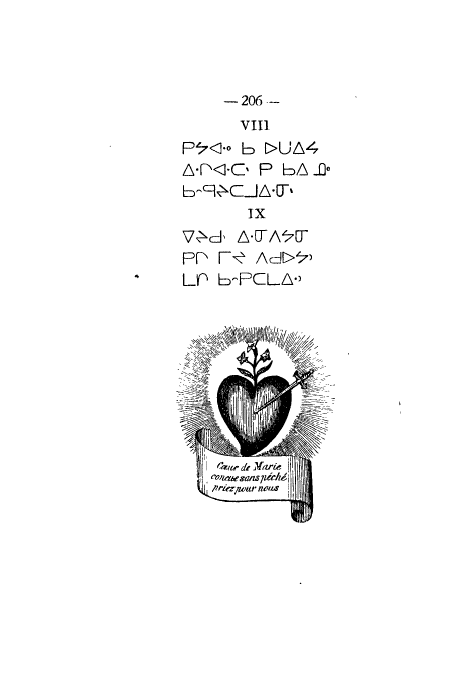 — 206 —
VIII
ᑭᔕᐊᐧᐤ ᑲ ᐅᑌᐃᔕ
ᐃᐧᒋᐊᐧᑕᐠ ᑭ ᑲᐃ
ᑲᐢᑫᔨᑕᒧᐃᐧᓂᐠ
IX
ᐁᔨᑯᐠ ᐃᐧᓂ ᐱᔭᓂ
ᑭᒋ ᒥᔪ ᐱᑯᐅᔭᐣ
ᒪᒋ ᑲᐢᑭᑕᒪᐃᐧᐣ
Cœur de Marie
concue sans péché
priez pour nous